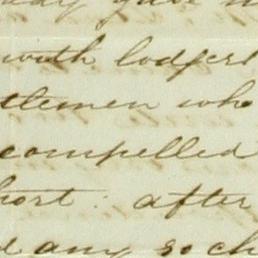 with lodgers
tlemen who
compelled
hort: after
any so ch